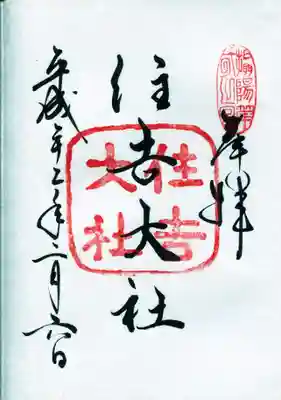 奉拝
住吉大社
住吉
大社
平成廿二年二月六日